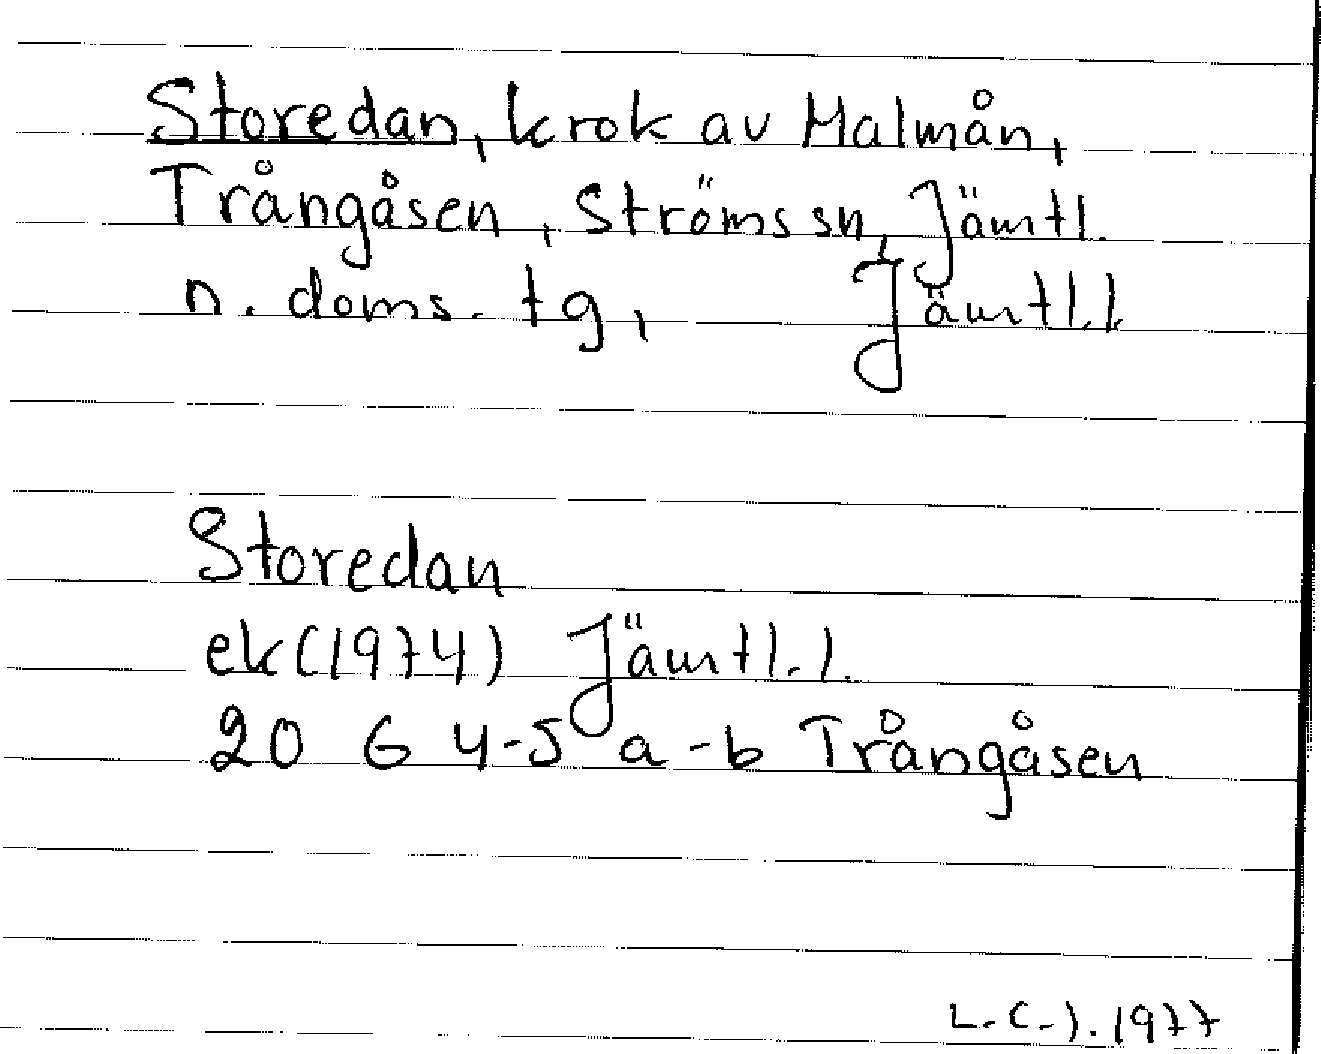 Storedan, krok av Malmån,
Trångåsen, Ströms sn, Jämtl.
n. doms. tg, Jämtl.l.
Storedan
ek (1974) Jämtl.l.
20 G 4-5 a-b Trångåsen
L.C.J. 1977